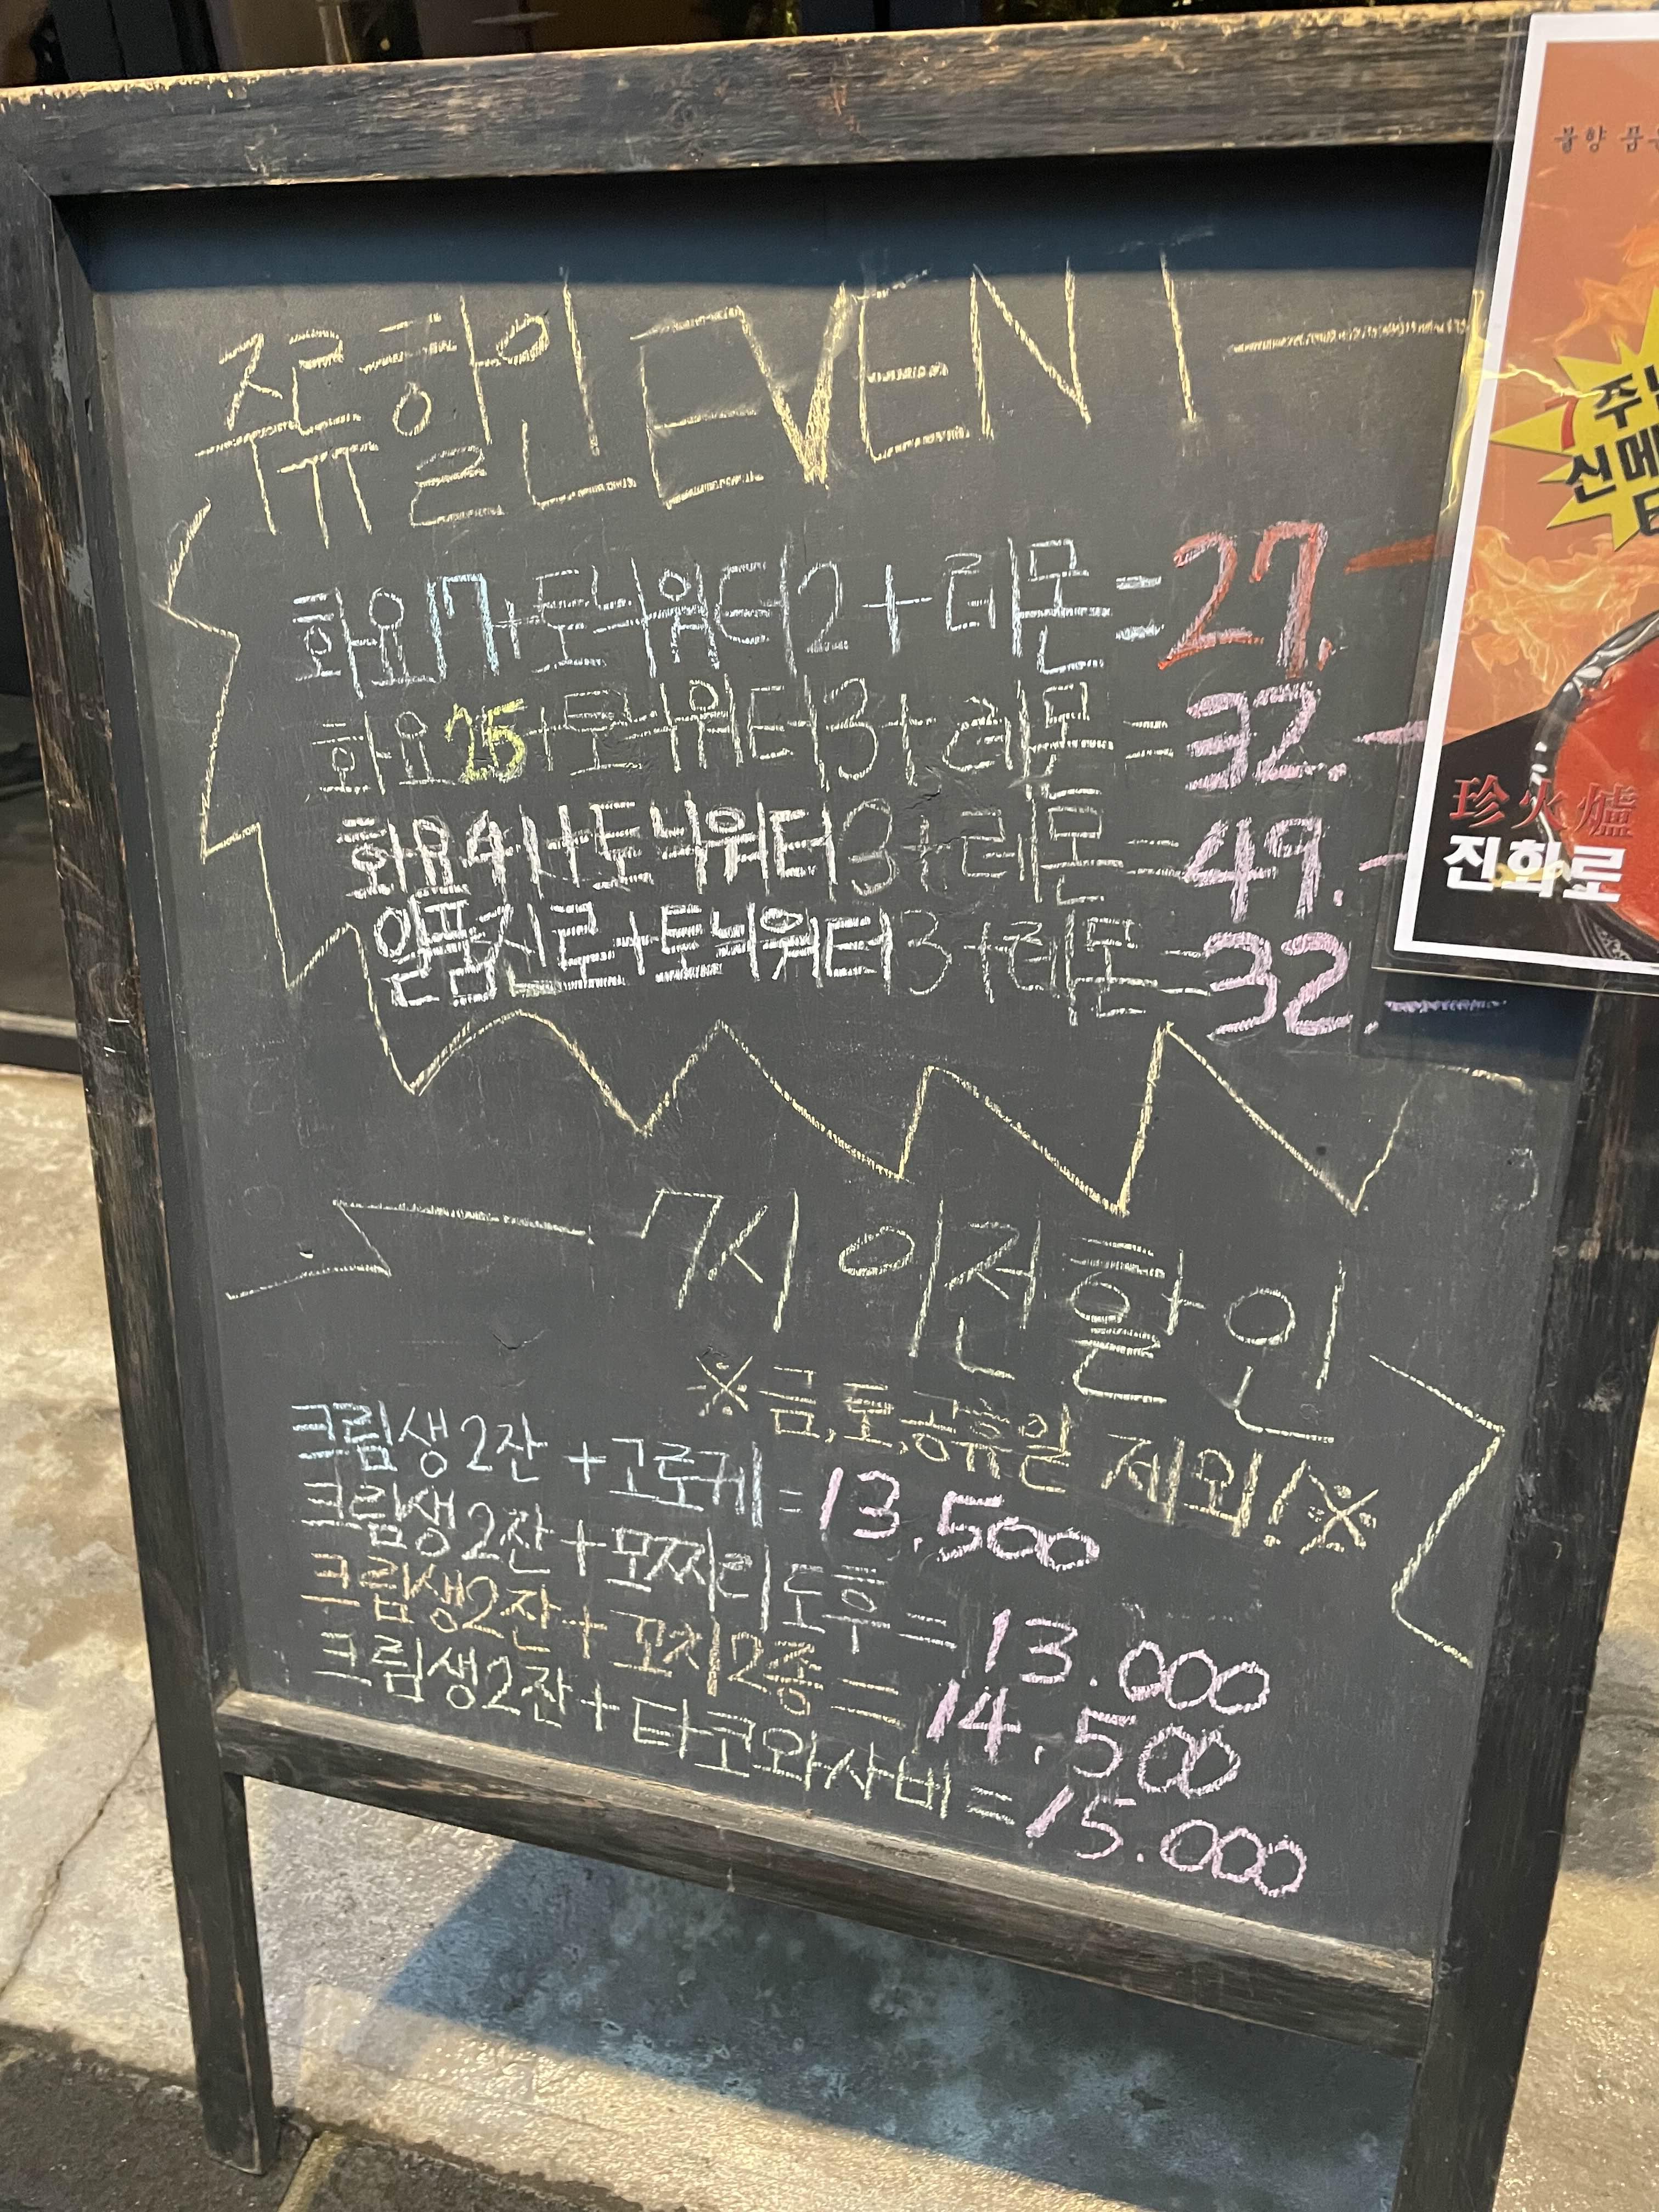 쥬류할인 EVENT
화요17+토닉워터2+레몬=27.-
화요25+토닉워터3+레몬=32.-
화요41+토닉워터3+레몬=49.-
일품진로+토닉워터3+레몬=32.-
7시 이전할인
※금,토,공휴일 제외!※
크림생2잔+고로케=13.500
크림생2잔+모찌리도후=13.000
크림생2잔+꼬치2종=14.500
크림생2잔+타코와사비=15.000
불향 품은
7주년
신메
珍火爐
진화로